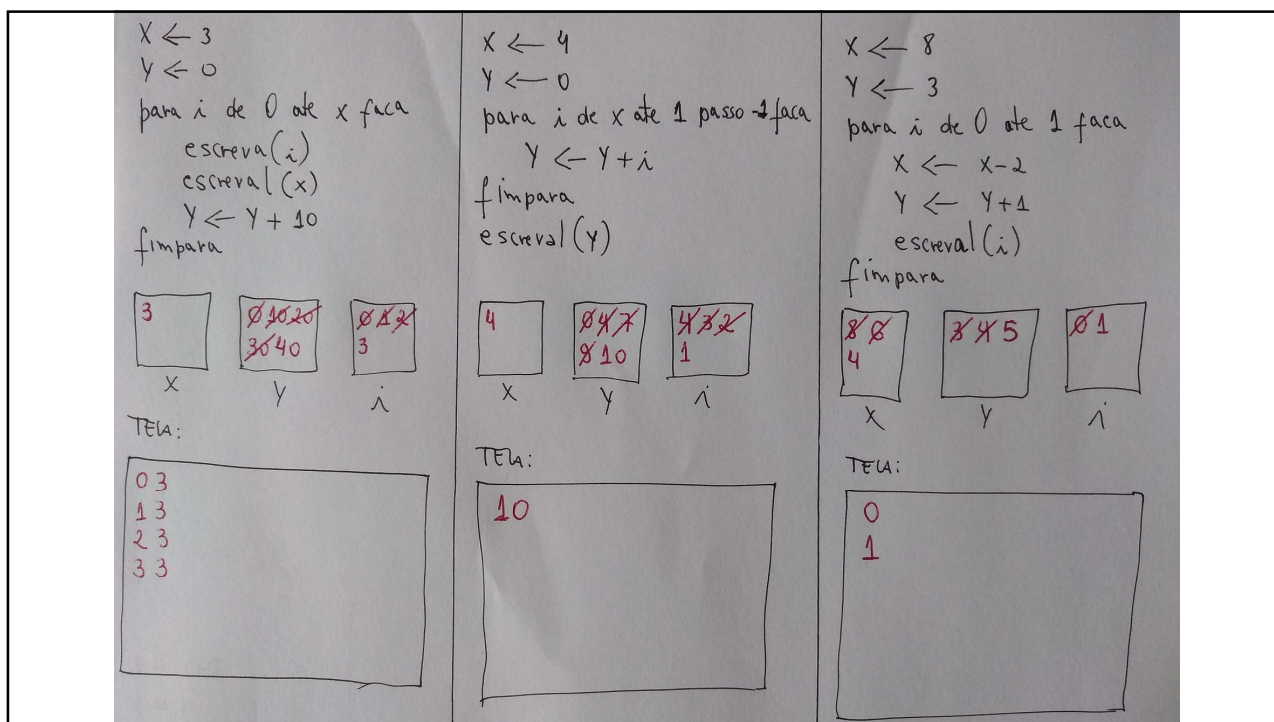 X ← 3
Y ← 0
para i de 0 ate x faca
escreva(i)
escreval(x)
Y ← Y + 10
fimpara
3
0 10 20
30 40
0 1 2
3
X
Y
i
TELA:
0 3
1 3
2 3
3 3
X ← 4
Y ← 0
para i de x ate 1 passo -1 faca
Y ← Y + i
fimpara
escreval(Y)
4
0 4 7
9 10
4 3 2
1
X
Y
i
TELA:
10
X ← 8
Y ← 3
para i de 0 ate 1 faca
X ← X-2
Y ← Y+1
escreval(i)
fimpara
8 6
4
3 4 5
0 1
X
Y
i
TELA:
0
1